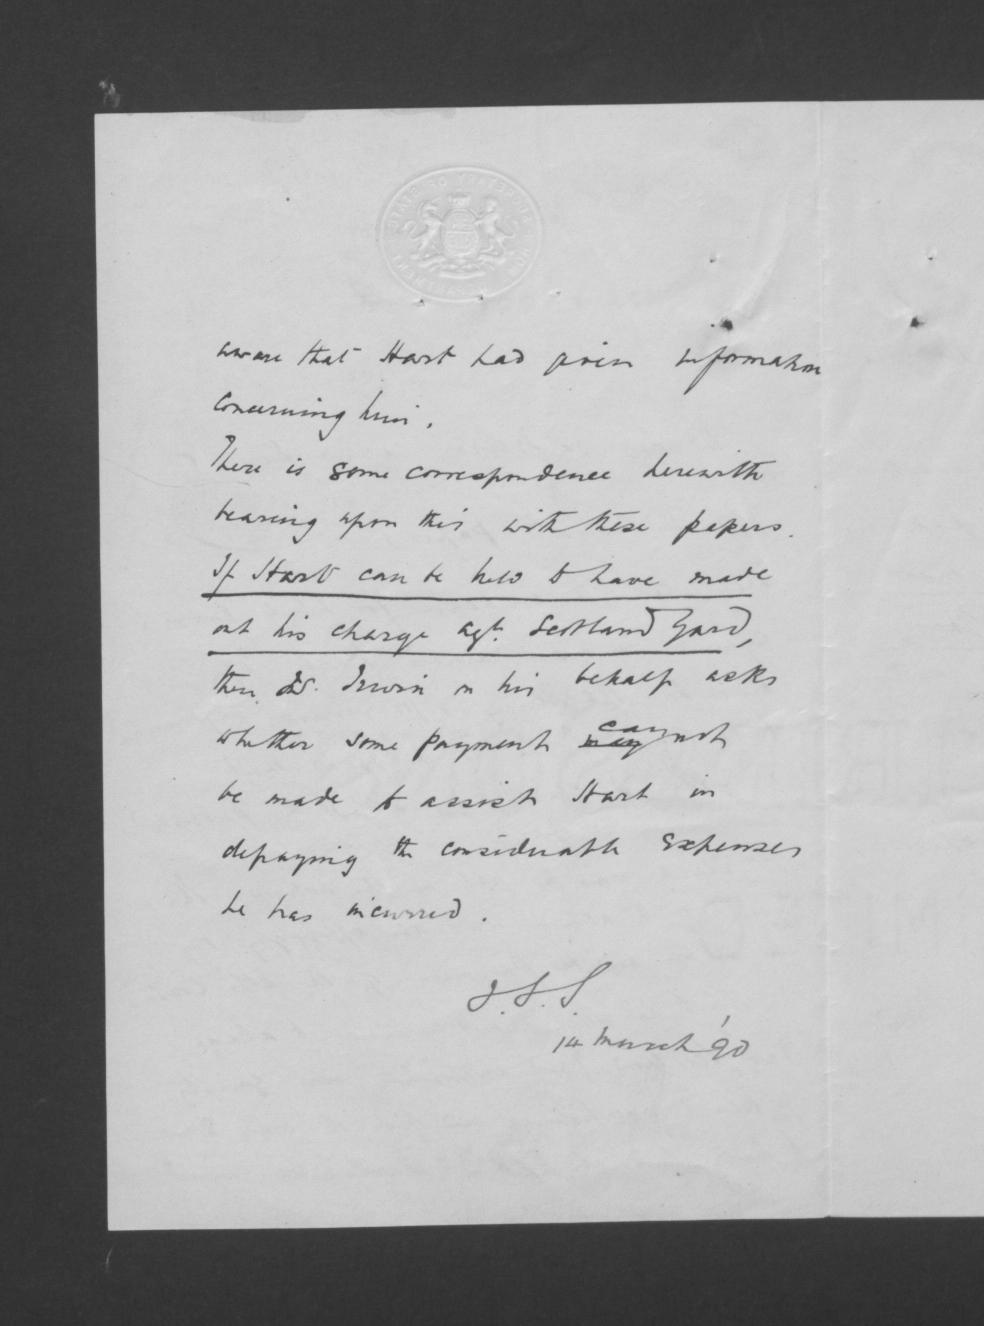 aware that Hart had given information
concerning him.
There is some correspondence herewith
bearing upon this with these papers.
If Hart can be held to have made
out his charge agt. Scotland Yard,
then Dr. Irwin on his behalf asks
whether some payment may cannot
be made to assist Hart in
defraying the considerable expenses
he has incurred.
J.S.S.
14 March '90